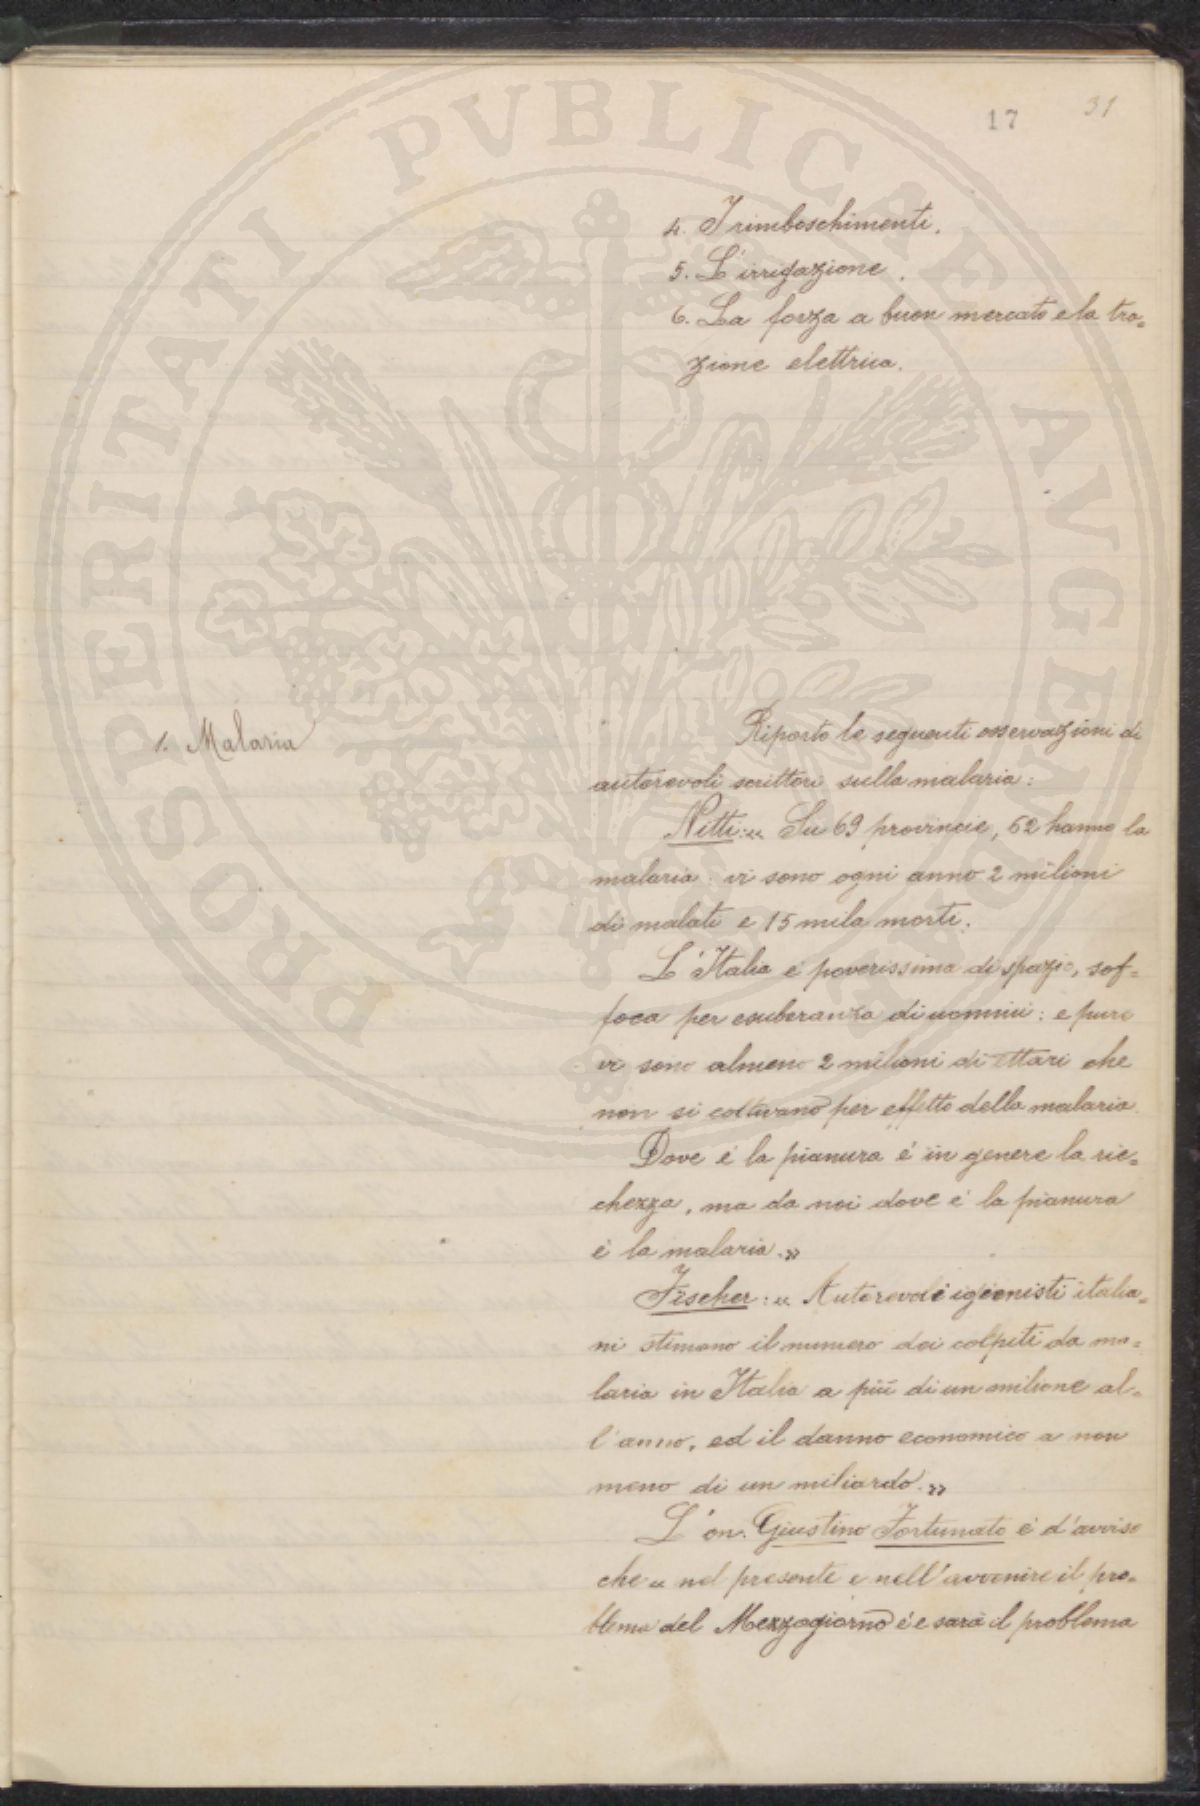 17
31
4. I rimboschimenti.
5. L'irrigazione.
6. La forza a buon mercato e la tra=
zione elettrica.
1. Malaria
Riporto le seguenti osservazioni di
autorevoli scrittori sulla malaria:
Nitti: « Su 69 provincie, 62 hanno la
malaria: vi sono ogni anno 2 milioni
di malati e 15 mila morti.
L'Italia è poverissima di spazio, sof=
foca per esuberanza di uomini: e pure
vi sono almeno 2 milioni di ettari che
non si coltivano per effetto della malaria.
Dove è la pianura è in genere la ric=
chezza, ma da noi dove è la pianura
è la malaria.»
Fischer: « Autorevoli igienisti italia=
ni stimano il numero dei colpiti da ma=
laria in Italia a più di un milione al=
l'anno, ed il danno economico a non
meno di un miliardo.»
L'on. Giustino Fortunato è d'avviso
che « nel presente e nell'avvenire il pro=
blema del Mezzogiorno è e sarà il problema
PROSPERITATI PVBLICAE AVGENDAE